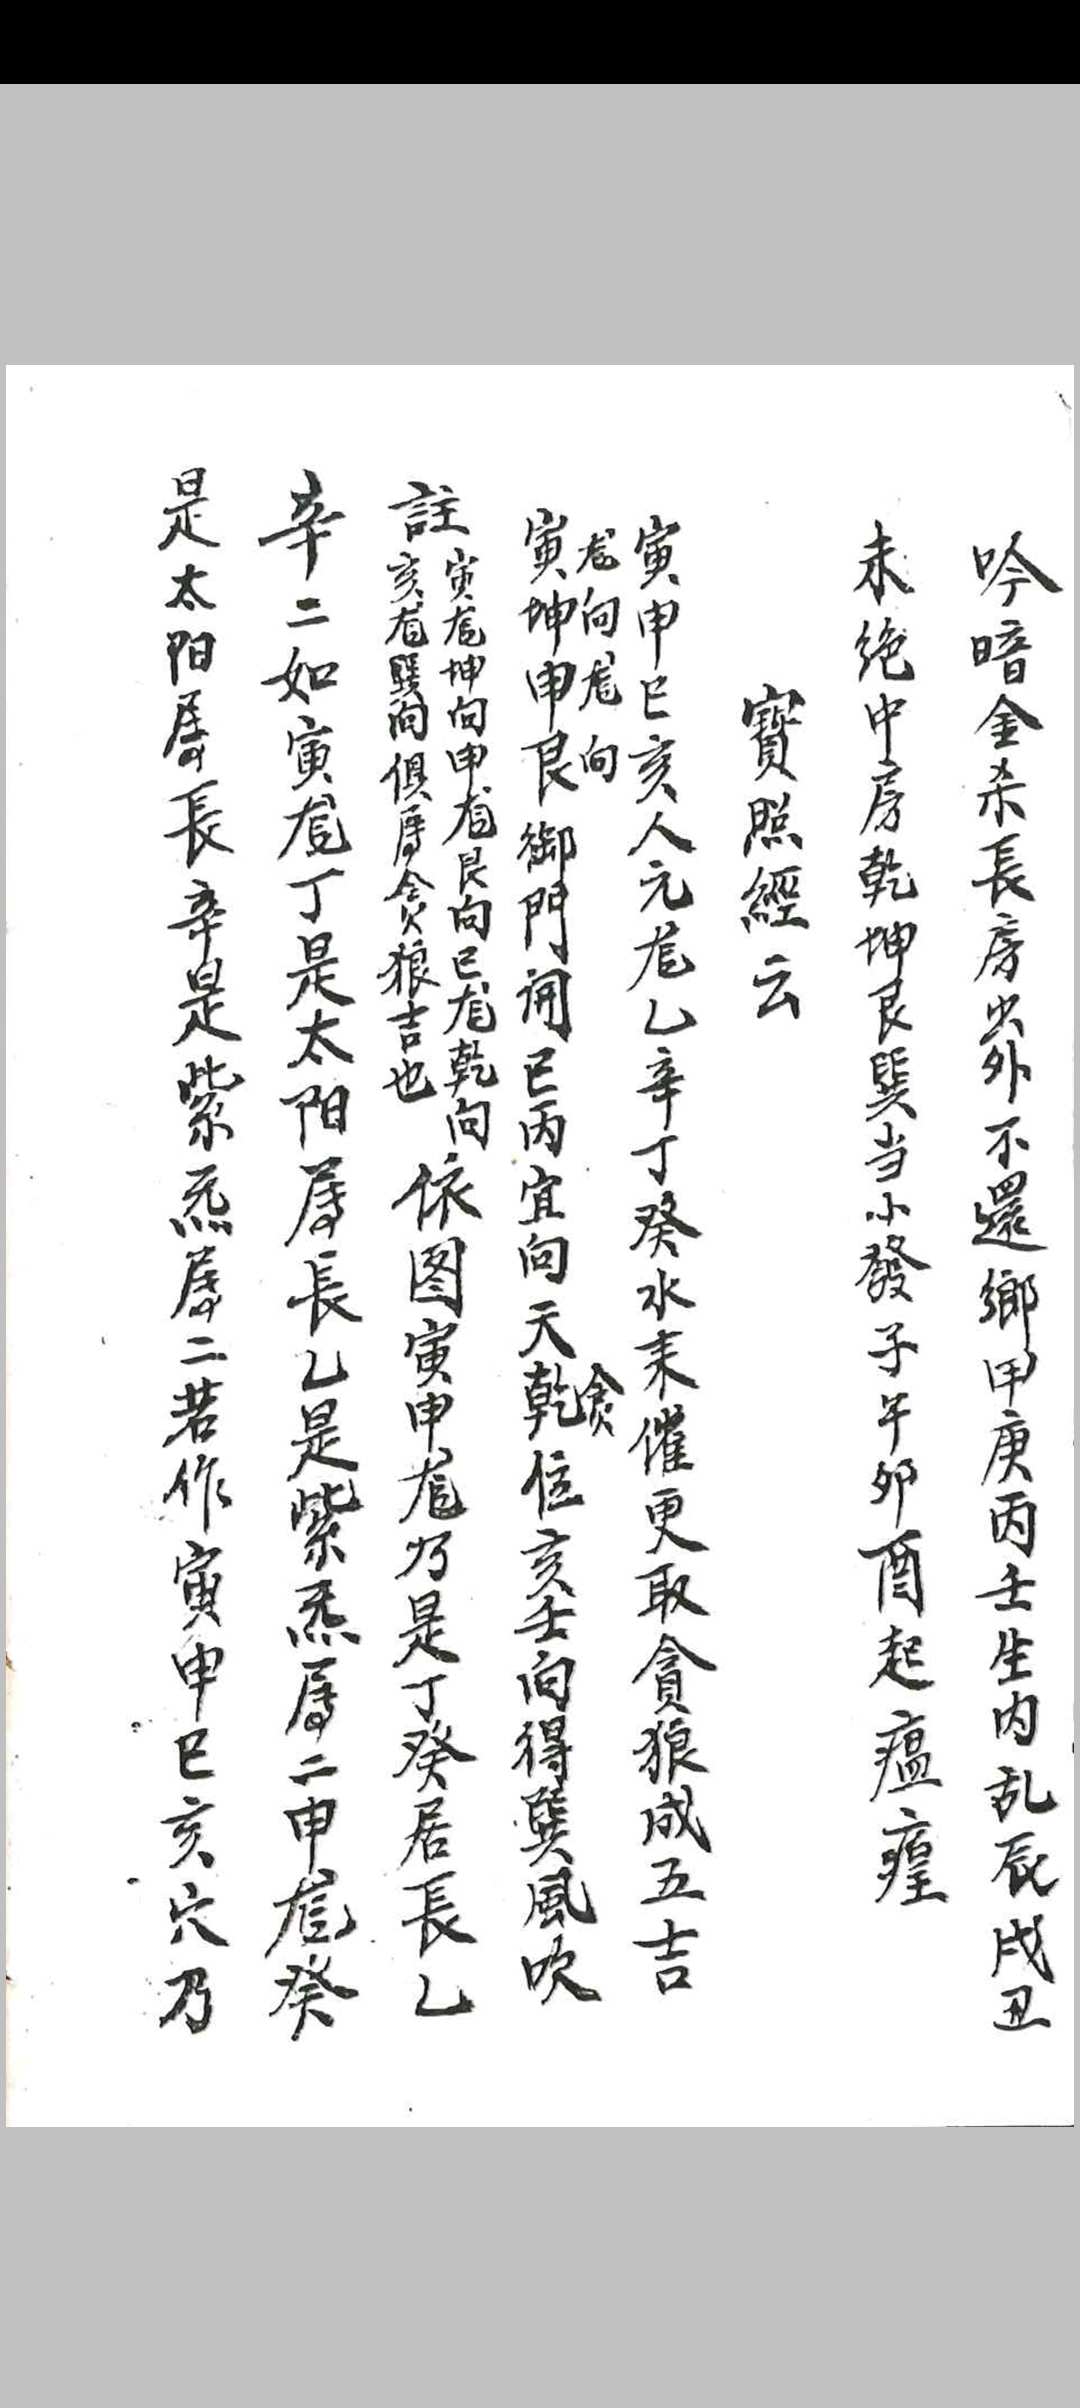 吟暗金杀長房出外不還鄉甲庚丙壬生内乱辰戌丑
未絶中房乾坤艮巽当小發子午卯酉起瘟瘟
寳照經云
寅申巳亥人元龙乙辛丁癸水来催更取貪狼成五吉
龙向龙向
貪
寅坤申艮御門開巳丙宜向天乾位亥壬向得巽風吹
註
寅龙坤向申龙艮向巳龙乾向
亥龙巽向俱属貪狼吉也
依图寅申龙乃是丁癸居長乙
辛二如寅龙丁是太阳属長乙是紫炁属二申龙癸
是太阳属長辛是紫炁属二若作寅申巳亥穴乃